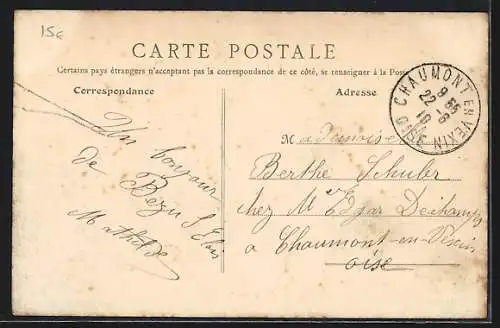 15€
CARTE POSTALE
Certains pays étrangers n'acceptant pas la correspondance de ce côté, se renseigner à la Poste
Correspondance
Adresse
CHAUMONT EN VEXIN
OISE
Un bonjour
de Bezu St Eloi
Mathilde
Mademoiselle
Berthe Schuler
chez Mr Edgar Dechamps
a Chaumont-en-Vexin
oise